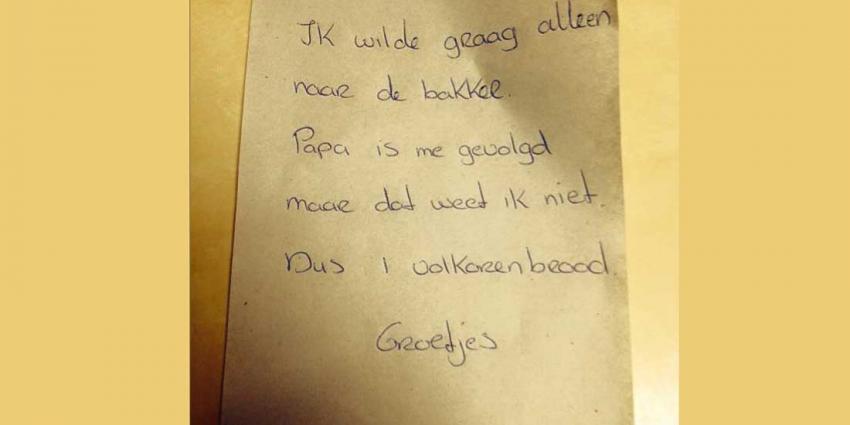 Ik wilde graag alleen
naar de bakker.
Papa is me gevolgd
maar dat weet ik niet.
Dus 1 volkorenbrood.
Groetjes